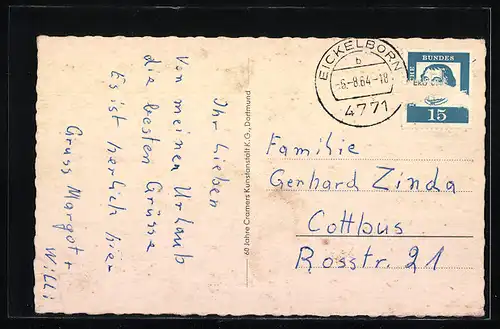 Ihr Lieben
Von meinen Urlaub
die besten Grüsse
Es ist herlich hier
Gruss Margot +
Willi
60 Jahre Cramers Kunstanstalt K.G., Dortmund
EICKELBORN
b
-6.-8.64-18
4771
BUNDES
15
Familie
Gerhard Zinda
Cottbus
Rosstr. 21